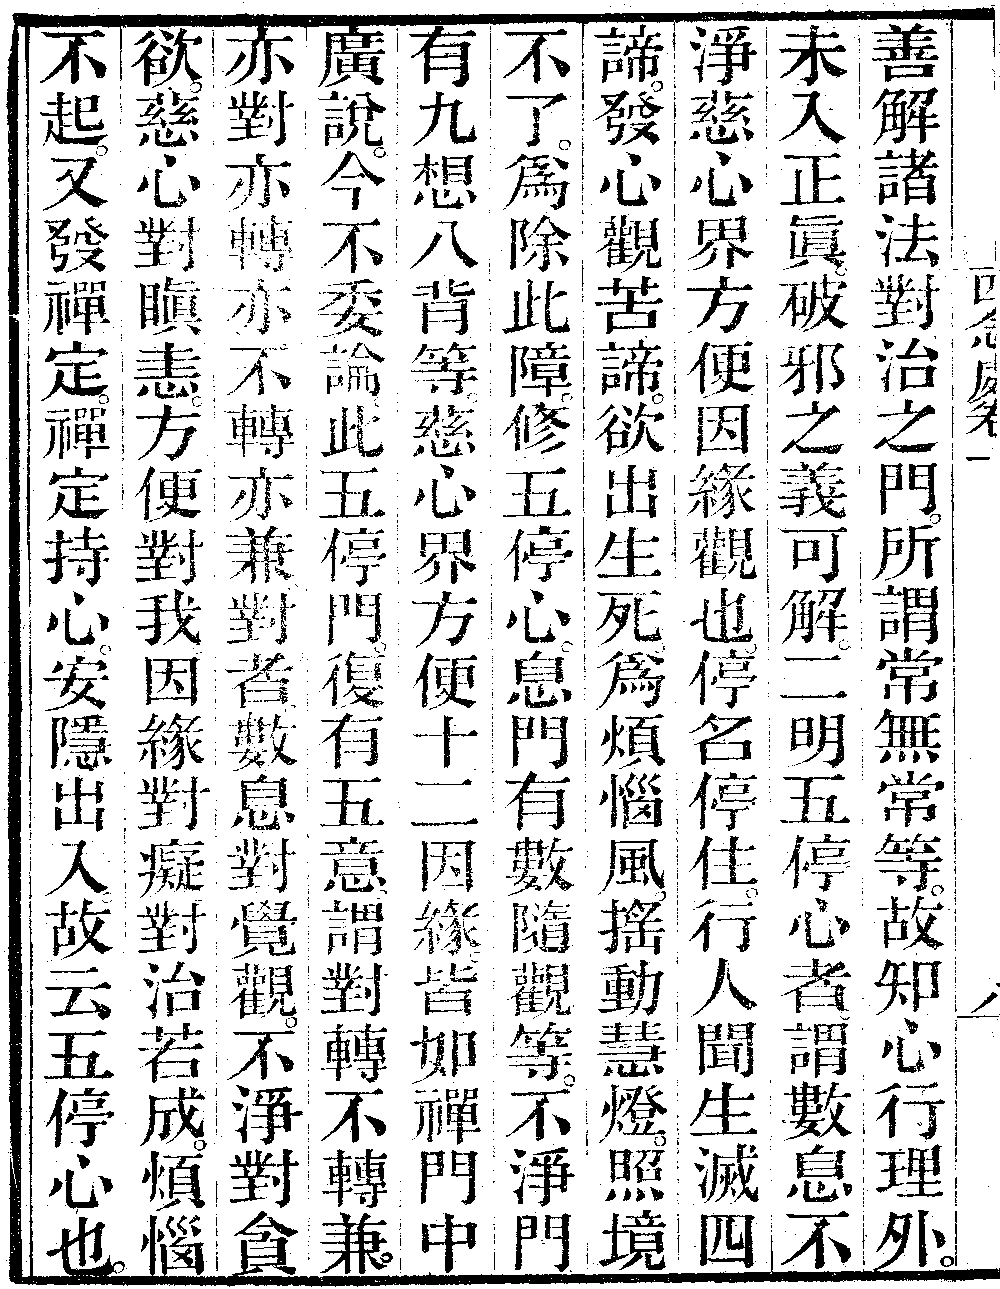 四念處卷一
善解諸法對治之門。所謂常無常等。故知心行理外。
未入正眞。破邪之義可解。二明五停心者。謂數息不
淨慈心界方便因緣觀也。停名停住。行人聞生滅四
諦。發心觀苦諦。欲出生死。爲煩惱風。搖動慧燈。照境
不了。爲除此障。修五停心。息門有數隨觀等。不淨門
有九想八背等。慈心界方便十二因緣。皆如禪門中
廣說。今不委論此五停門。復有五意。謂對轉不轉兼。
亦對亦轉亦不轉亦兼。對者。數息對覺觀。不淨對貪
欲。慈心對瞋恚。方便對我因緣對癡對治若成。煩惱
不起。又發禪定。禪定持心。安隱出入。故云五停心也。